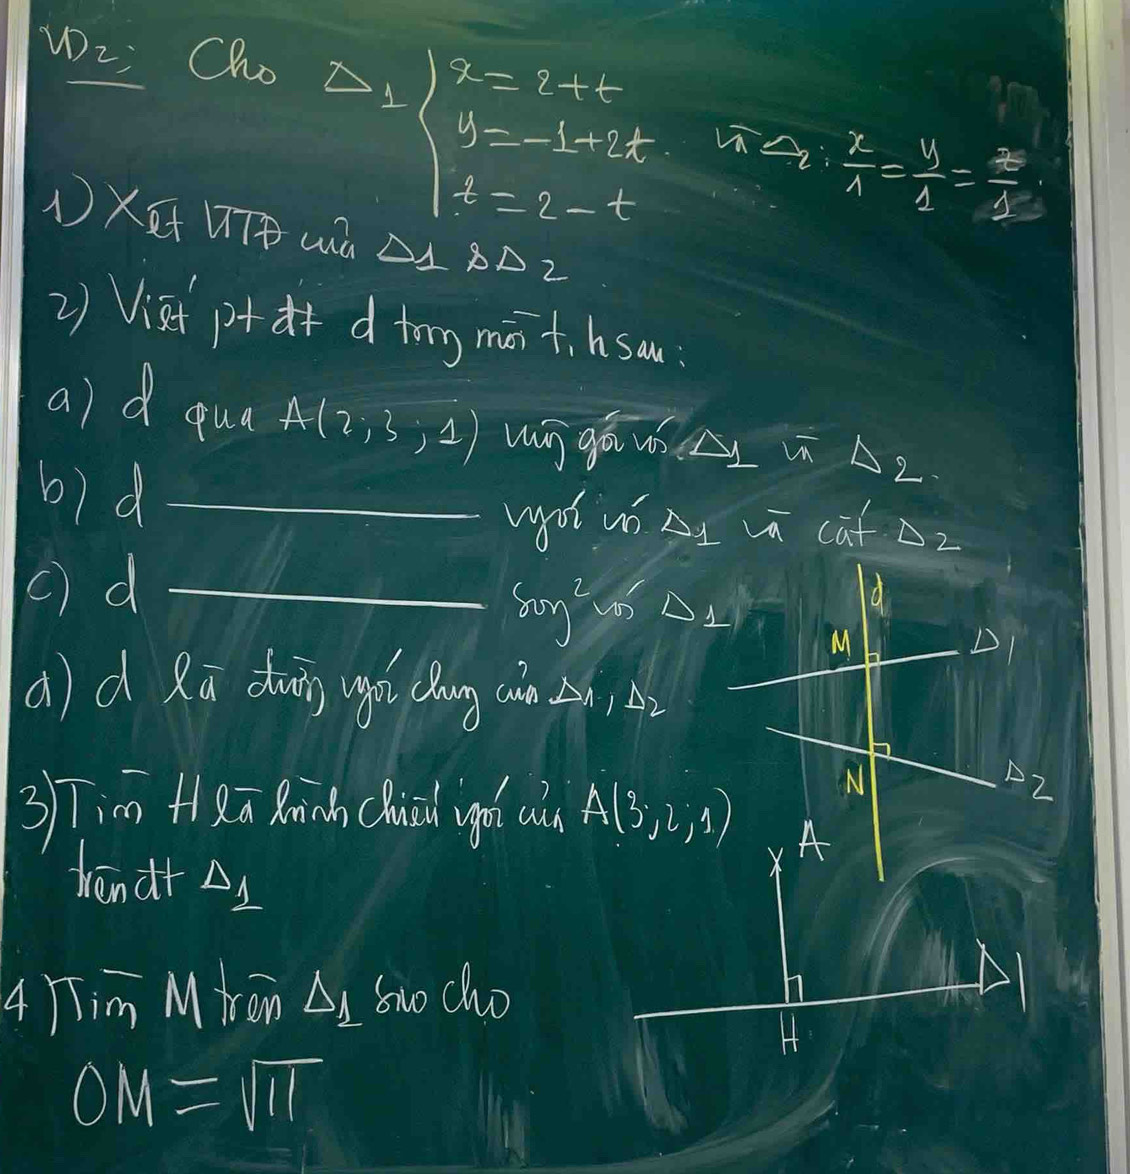 VD2: Cho Δ1 { x = 2 + t
y = -1 + 2t và Δ2: x/1 = y/1 = z/1.
z = 2 - t
1) Xét VTTĐ của Δ1 & Δ2
2) Viết pt đt d trong mỗi t.h sau:
a) d qua A(2; 3; 1) vuông góc với Δ1 và Δ2.
b) d ———— vgóc với Δ1 và cắt Δ2
c) d ———— song² với Δ1
d) d là đường vgóc chung của Δ1, Δ2
d
M
Δ1
N
Δ2
3) Tìm H là hình chiếu vgóc của A(3; 2; 1)
trên đt Δ1
A
Δ1
H
4) Tìm M trên Δ1 sao cho
OM = √11